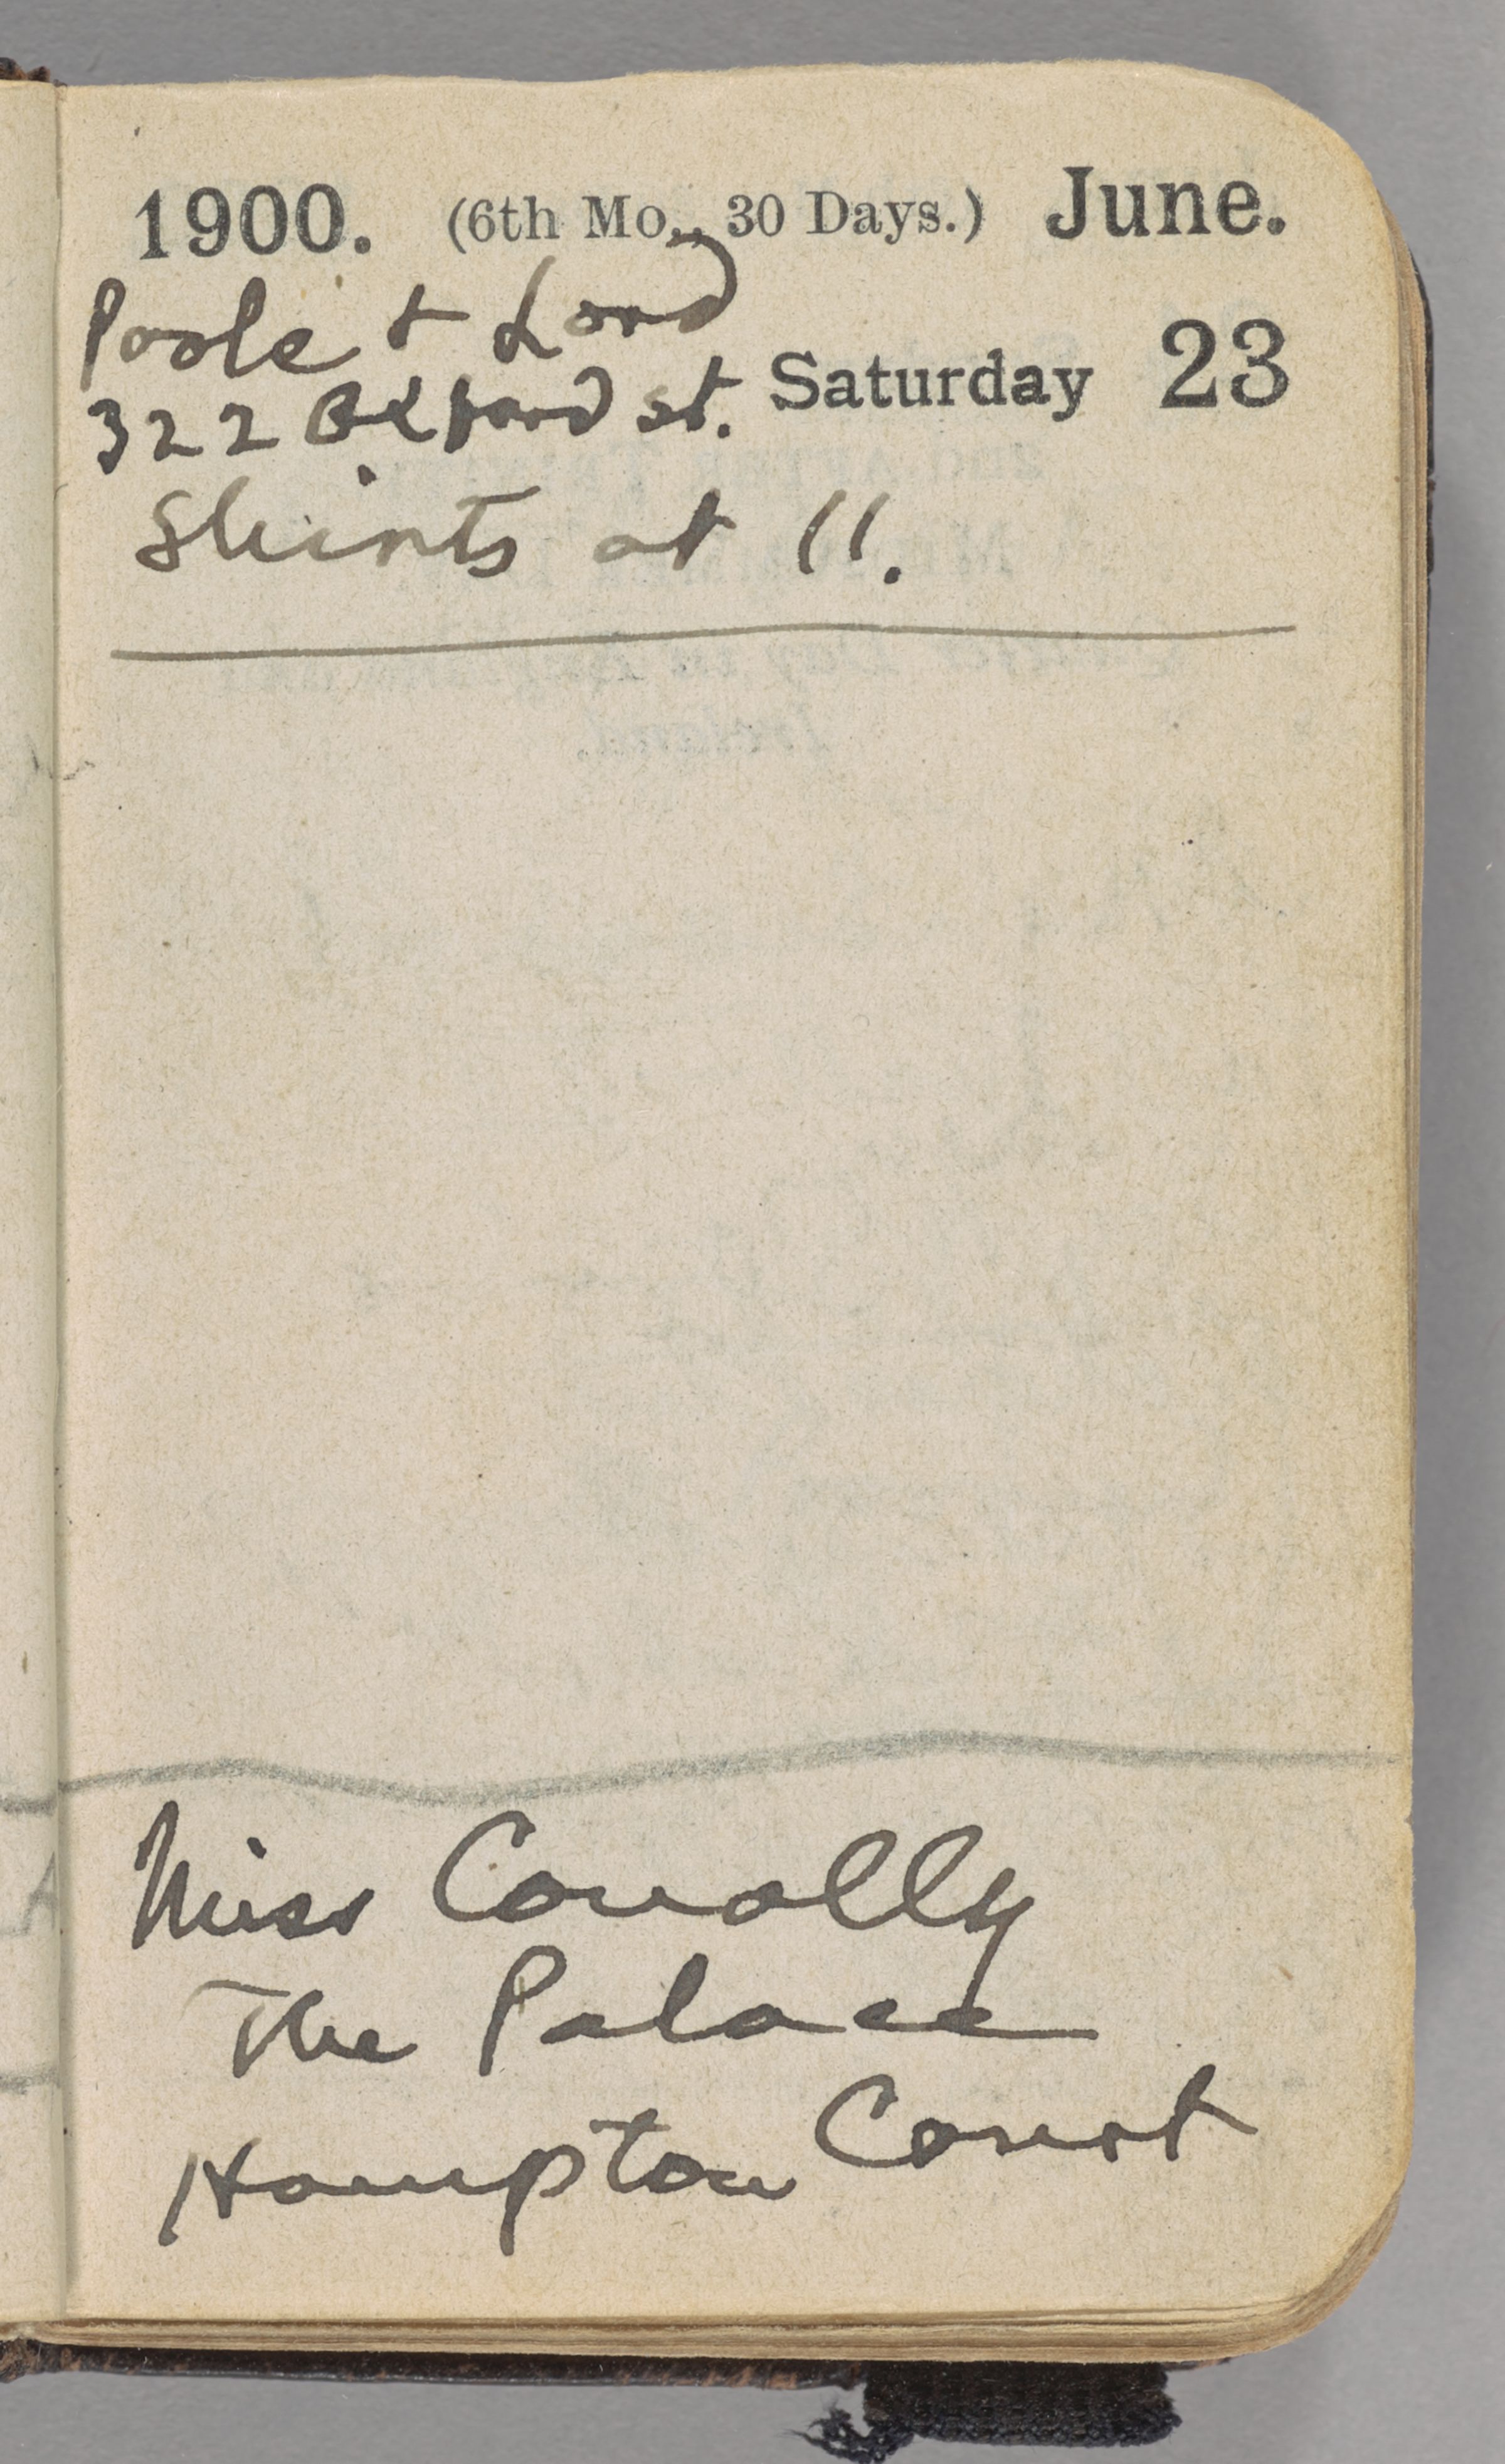 1900. (6th Mo., 30 Days.) June.
Poole & Lord
322 Oxford st. Saturday 23
Shirts at 11.
Miss Conolly
The Palace
Hampton Court